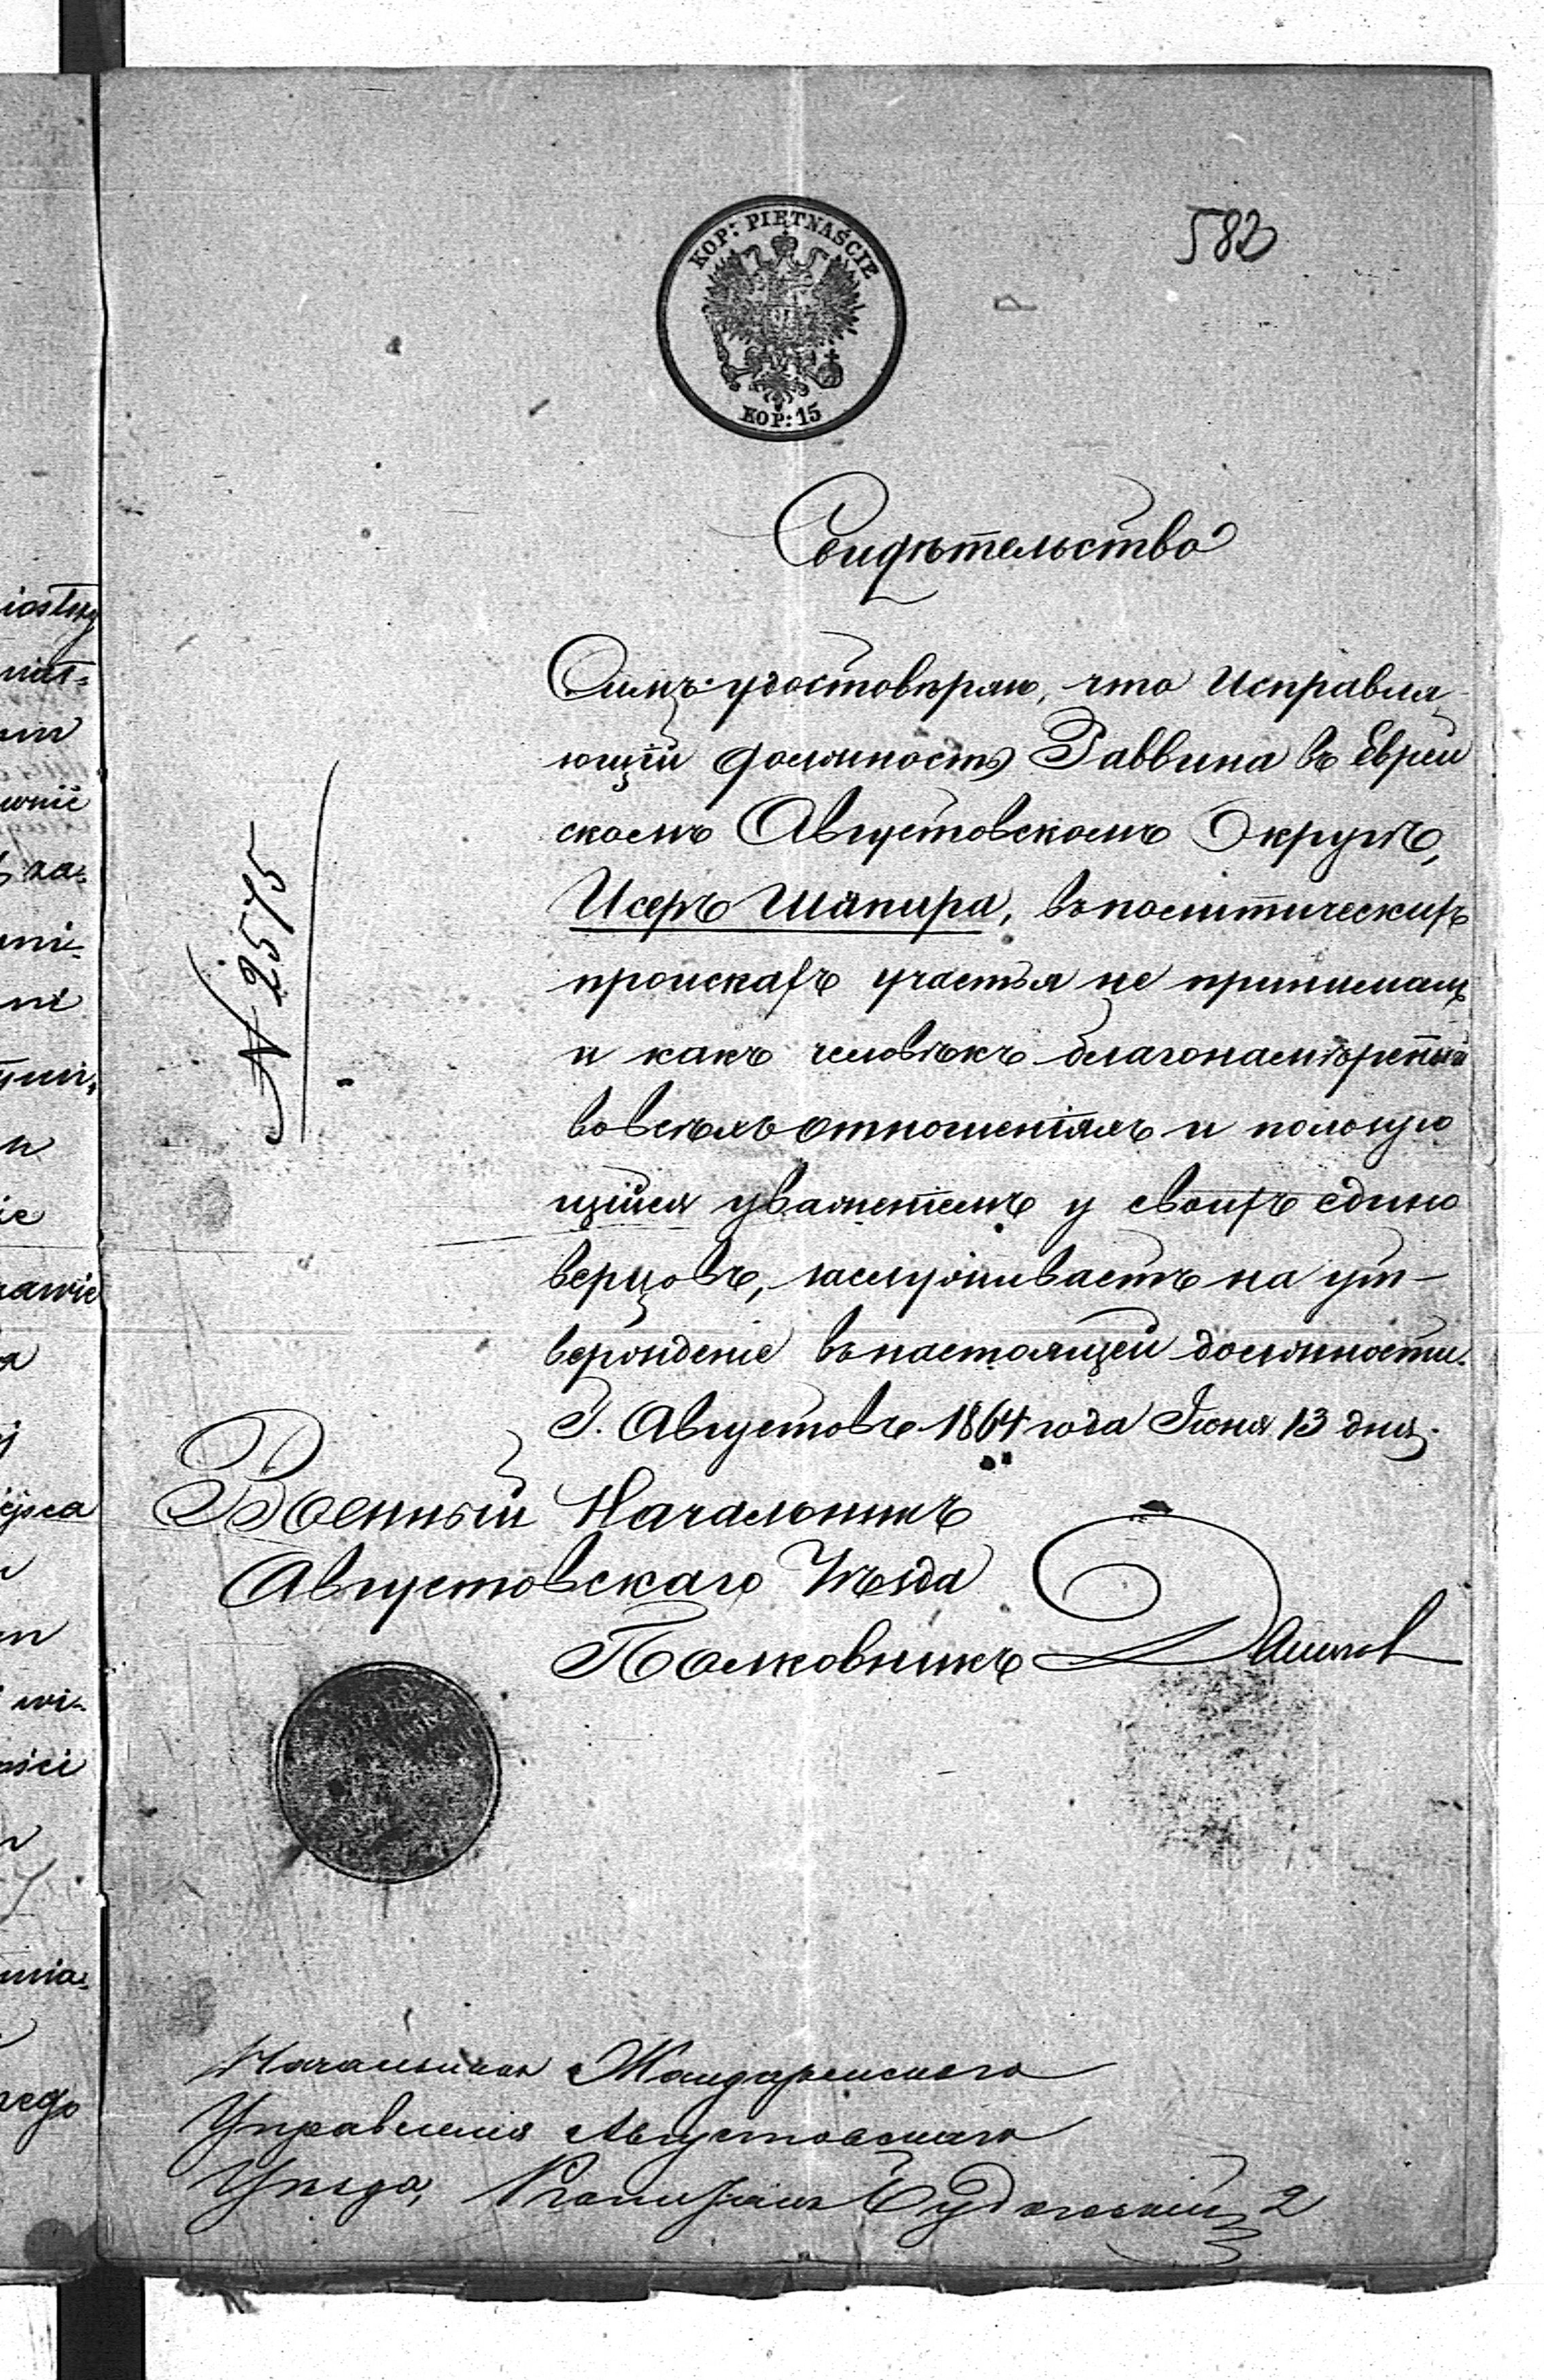 KOP: PIĘTNAŚCIE
KOP: 15
583
Свидѣтельство
Симъ удостовѣряю, что Исправля-
ющій должность Раввина въ Еврей
скомъ Августовскомъ Округѣ,
Исеръ Шапира, въ политическихъ
происkахъ участья не принималъ
и какъ человѣкъ благонамѣренный
во всѣхъ отношеніяхъ и пользую
щійся уваженіемъ у своихъ едино
верцовъ, заслуживаетъ на ут-
вержденіе въ настоящей должности.
Г. Августовъ 1864 года Іюня 13 дня.
N 2575
Военный Начальникъ
Августовскаго Уѣзда
Полковникъ
Начальникъ Жандармскаго
Управленія Августовскаго
Уѣзда, Капитанъ
iastery
wnie
ni
ie
rawie
a
wi-
ości
nego